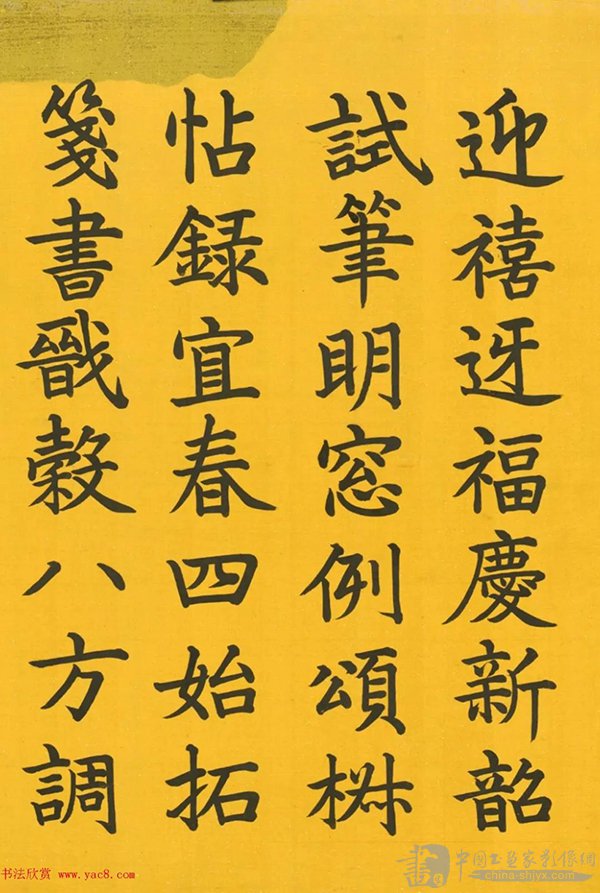 迎禧迓福慶新韶
試筆明窓例頌椒
帖録宜春四始拓
箋書戩穀八方調
书法欣赏 www.yac8.com
中國书画家影像網
china-shjyx.com